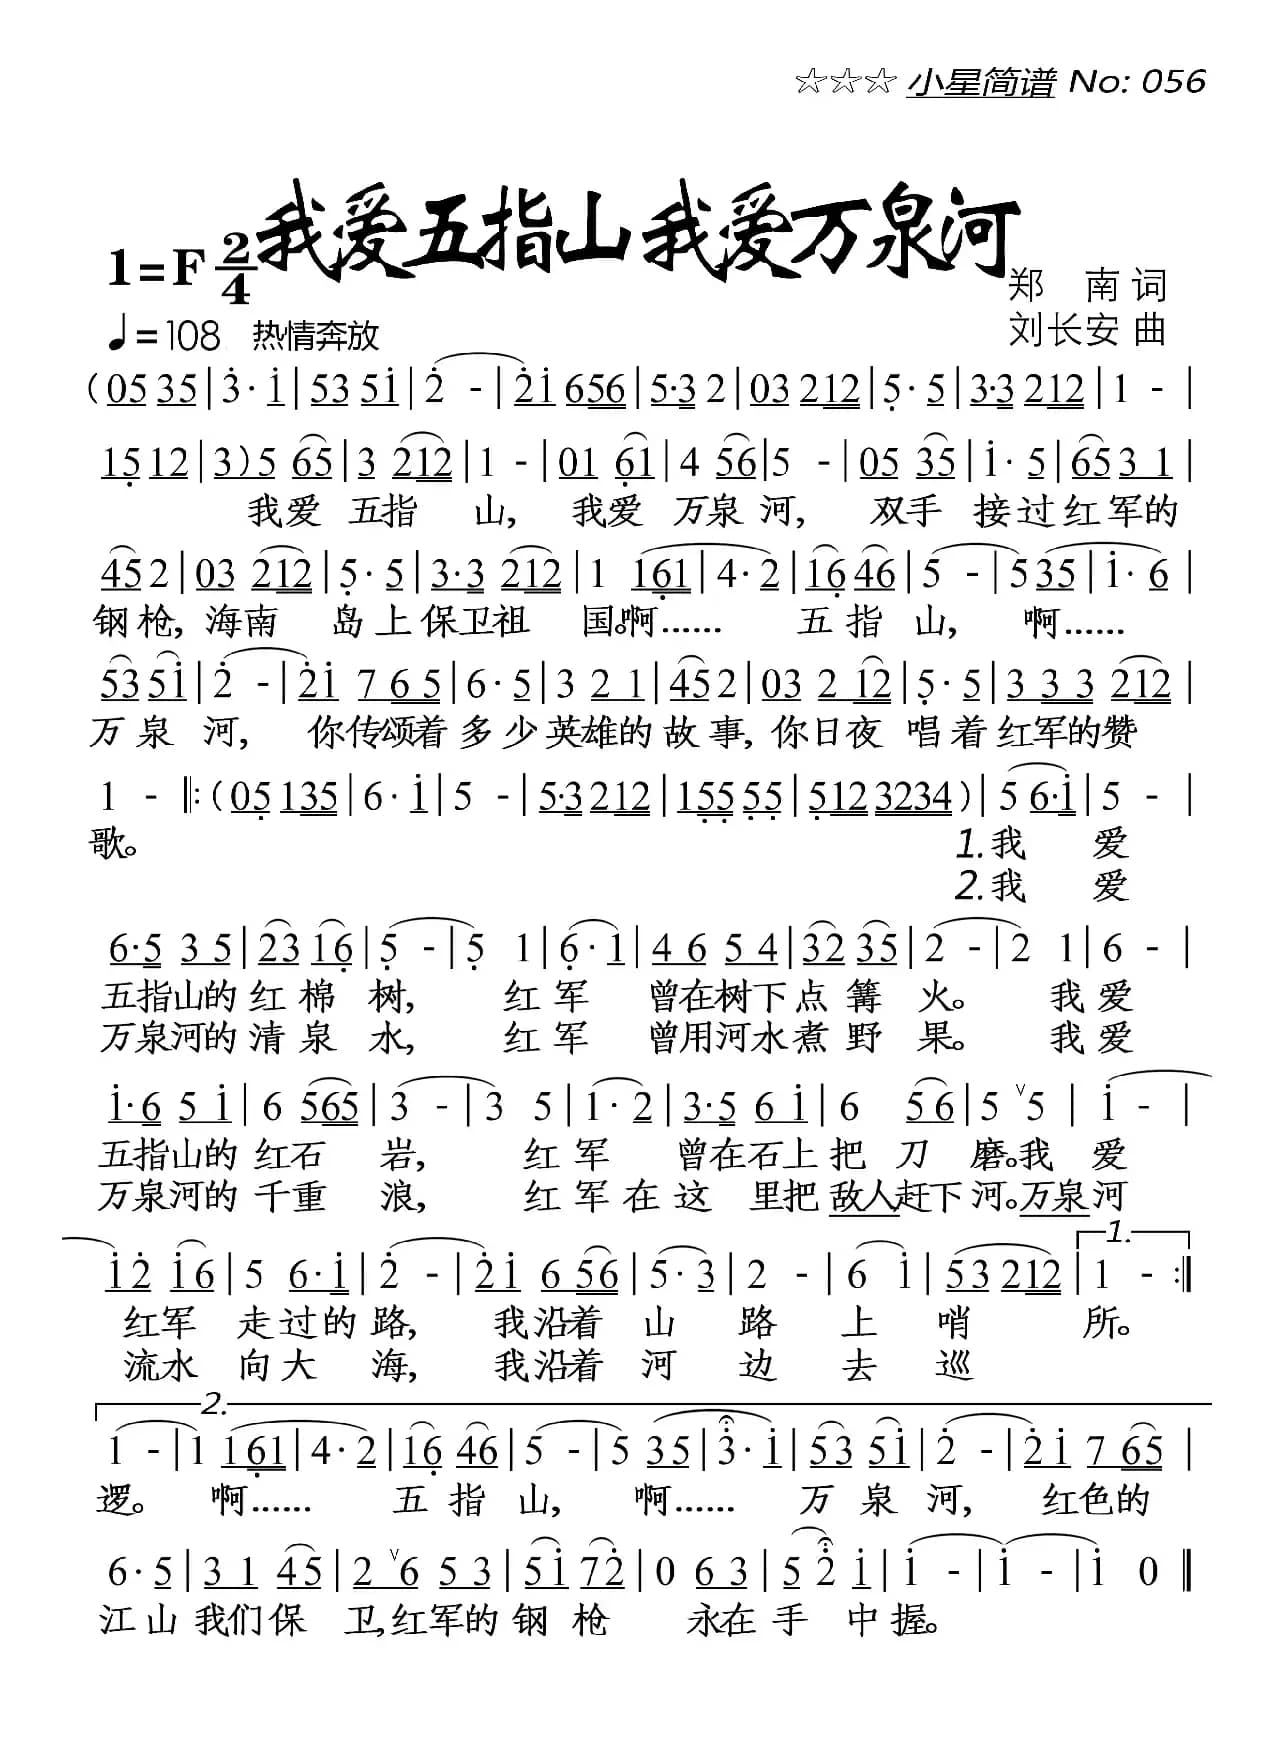 ☆☆☆ 小星简谱 No: 056
我爱五指山 我爱万泉河
1=F 2/4
郑 南 词
♩=108 热情奔放
刘长安 曲
(05 35|3· i|53 5i|2 -|2i 656|5·3 2|03 212|5· 5|3·3 212|1 -|
15 12|3) 5 65|3 212|1 -|01 61|4 56|5 -|05 35|i· 5|653 1|
我爱 五指 山, 我爱 万泉 河, 双手 接过红军的
452|03 212|5· 5|3·3 212|1 161|4·2|16 46|5 -|535|i· 6|
钢枪, 海南 岛上保卫祖 国。啊…… 五指山, 啊……
53 5i|2 -|2i 7 65|6·5|3 2 1|452|03 2 12|5·5|3 3 3 212|
万泉 河, 你传颂着多少英雄的故事, 你日夜 唱着红军的赞
1 - ‖:(05 135|6· i|5 -|5·3 212|155 55|512 3234)|5 6·i|5 -|
歌。 1.我 爱
2.我 爱
6·5 3 5|23 16|5 -|5 1|6· 1|4 6 5 4|32 35|2 -|2 1|6 -|
五指山的红棉 树, 红军 曾在树下点篝 火。 我爱
万泉河的清泉 水, 红军 曾用河水煮野 果。 我爱
i·6 5 i|6 565|3 -|3 5|1·2|3·5 6 i|6 56|5 ∨5|i -|
五指山的红石 岩, 红军 曾在石上把刀 磨。我爱
万泉河的千重 浪, 红军在这 里把敌人赶下河。万泉河
1.
i2 i6|5 6·i|2 -|2i 6 56|5·3|2 -|6 i|53 212|1 -:‖
红军 走过的路, 我沿着 山 路 上 哨 所。
流水 向大 海, 我沿着 河 边 去 巡
2.
1 -|1 161|4·2|16 46|5 -|5 35|3· i|53 5i|2 -|2i 7 65|
逻。 啊…… 五指山, 啊…… 万泉河, 红色的
6·5|3 1 45|2 ∨6 5 3|5i 72|0 6 3|5 2 i|i -|i -|i 0‖
江山我们保 卫,红军的钢枪 永在手 中握。